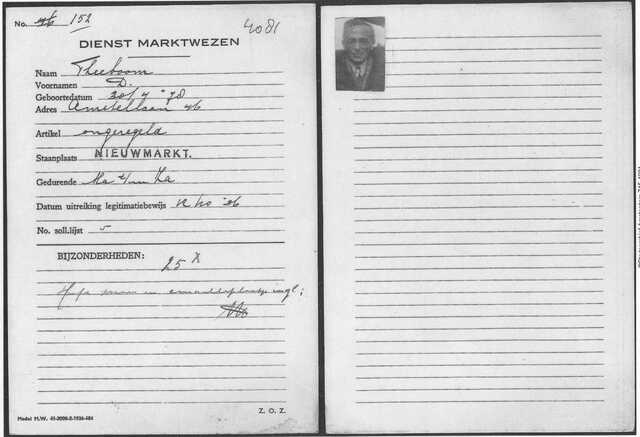 No. 152
4081
DIENST MARKTWEZEN
Naam Theeboom
Voornamen D.
Geboortedatum 20/4 '78
Adres Amstellaan 26
Artikel ongeregeld
Staanplaats NIEUWMARKT.
Gedurende Ma t/m Za
Datum uitreiking legitimatiebewijs
No. soll.lijst 5
BIJZONDERHEDEN:
25 X
Z. O. Z.